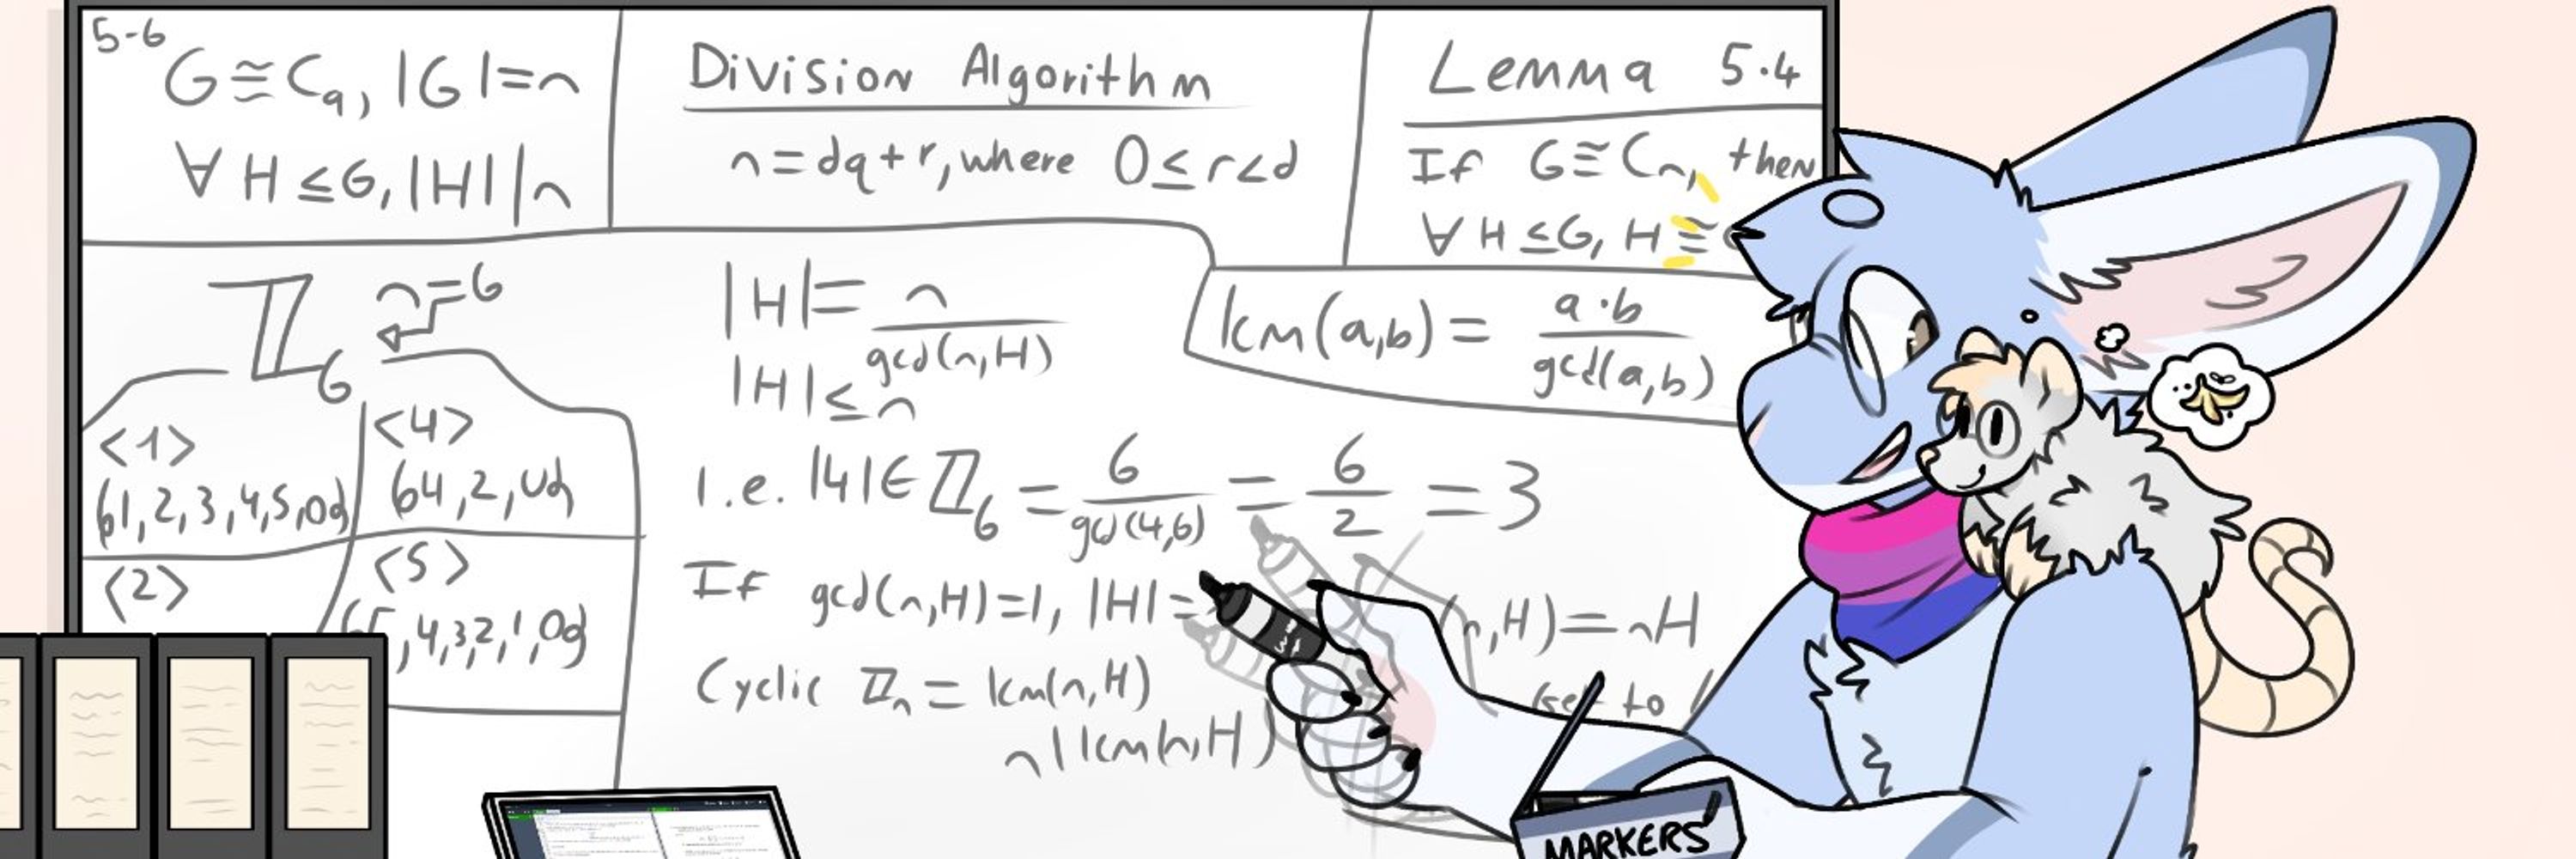 5-6
G ≅ Cq, |G|=n
∀ H ≤ G, |H| | n
Division Algorithm
n = dq + r, where 0 ≤ r < d
Lemma 5.4
If G ≅ Cn, then
∀ H ≤ G, H ≅
ℤ6
n=6
<1>
{1,2,3,4,5,0}
<4>
{4,2,0}
<2>
<5>
,4,3,2,1,0}
|H| = n / gcd(n,H)
|H| ≤ n
lcm(a,b) = a·b / gcd(a,b)
i.e. |4| ∈ ℤ6 = 6 / gcd(4,6) = 6/2 = 3
If gcd(n,H)=1, |H| =
n,H)=nH
Cyclic ℤn = lcm(n,H)
to
n | lcm(n,H)
MARKERS